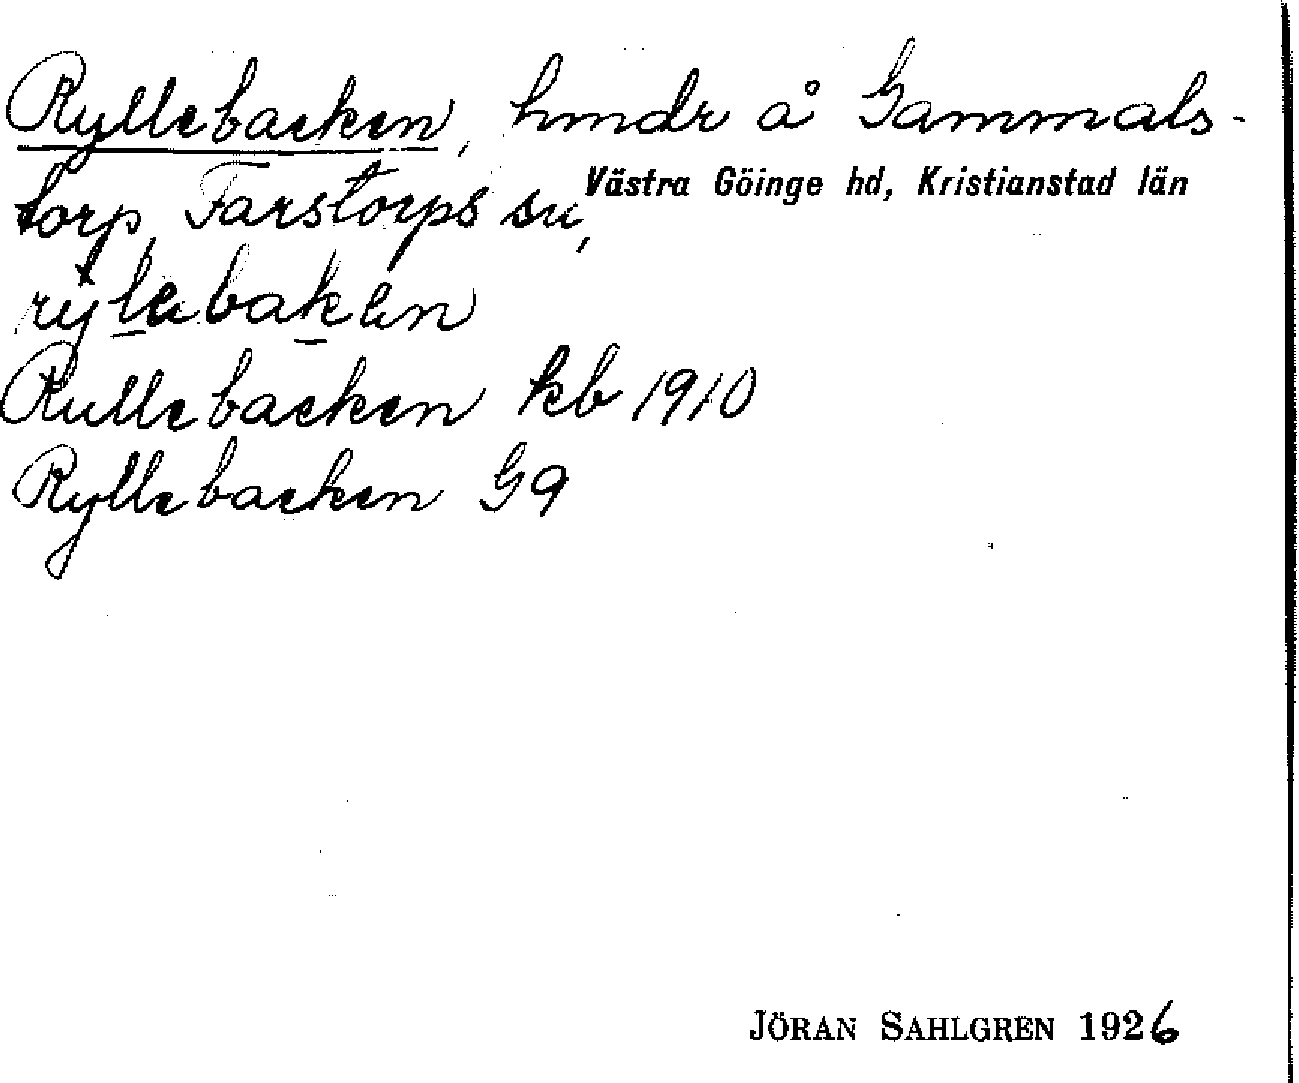 Ryllebacken, hmdr å Gammals-
torp, Farstorps sn, Västra Göinge hd, Kristianstad län
Rullebacken kb 1910
Ryllebacken G9
JÖRAN SAHLGREN 1926